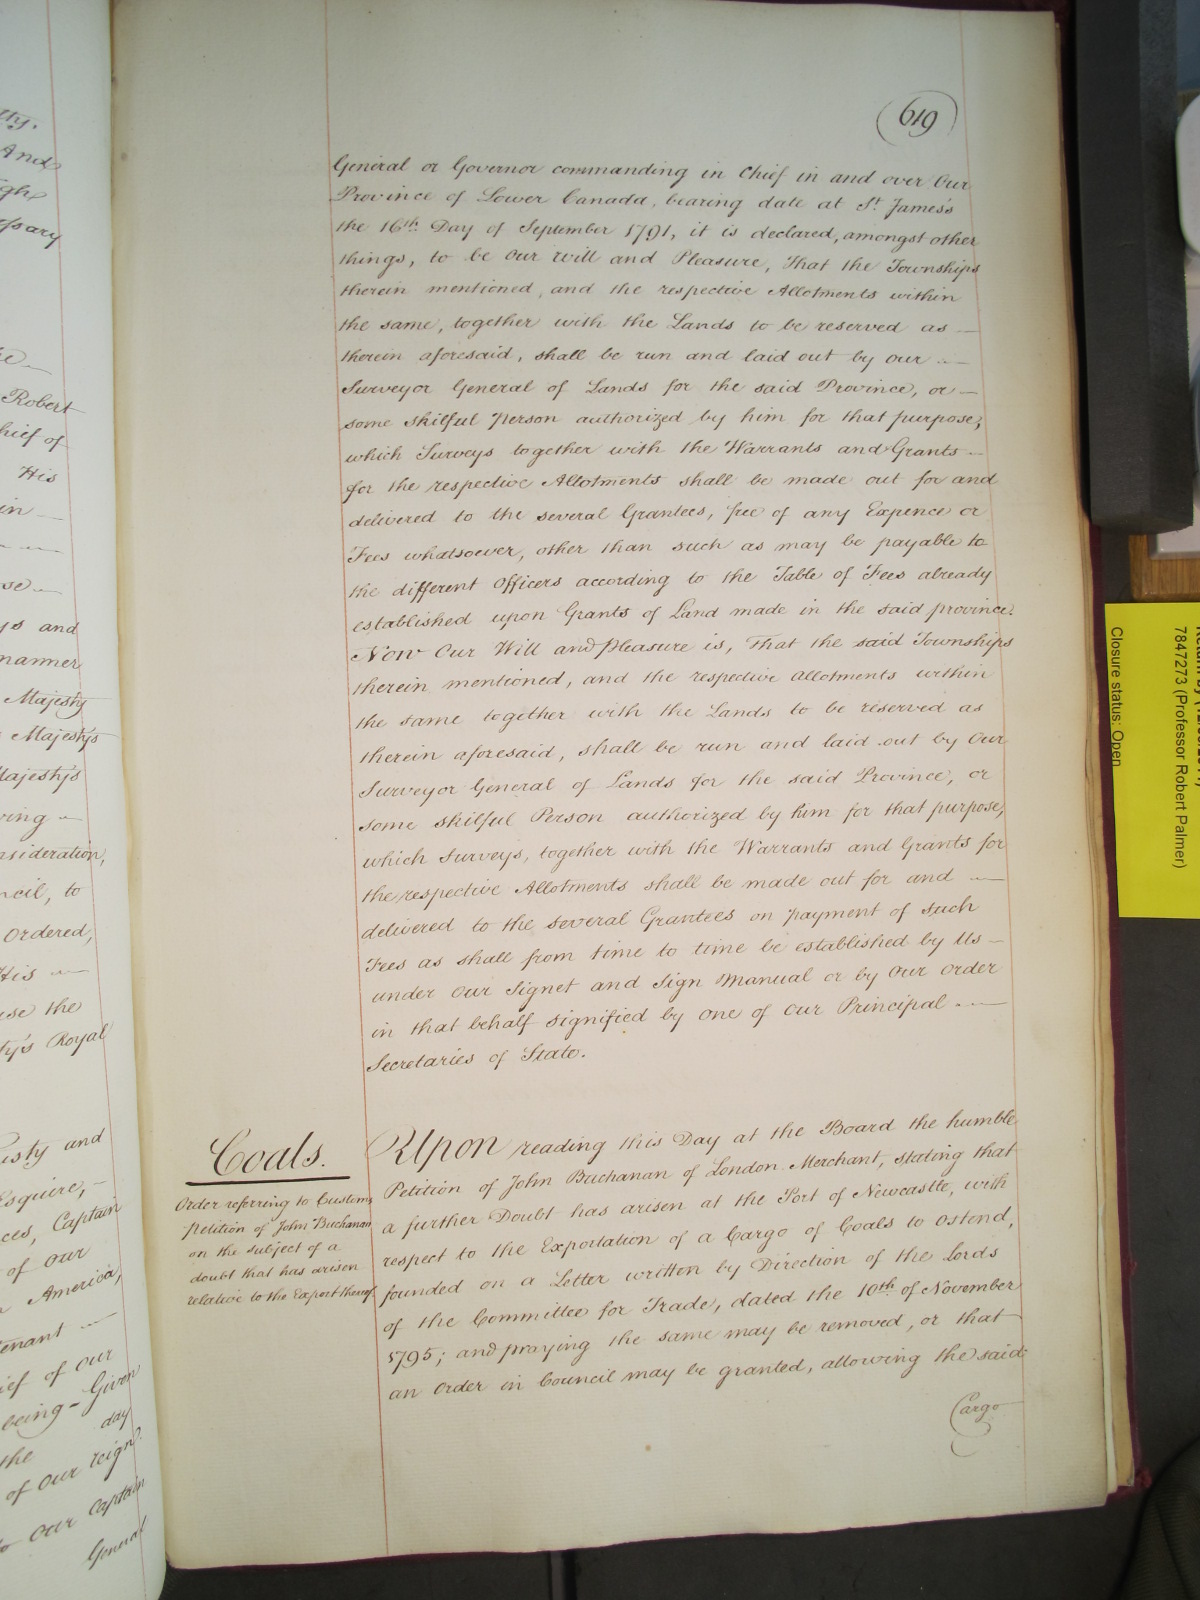 619
General or Governor commanding in Chief in and over Our
Province of Lower Canada, bearing date at St. James's
the 16th. Day of September 1791, it is declared, amongst other
things, to be Our will and Pleasure, That the Townships
therein mentioned, and the respective Allotments within
the same, together with the Lands to be reserved as —
therein aforesaid, shall be run and laid out by our —
Surveyor General of Lands for the said Province, or —
some skilful Person authorized by him for that purpose;
which Surveys together with the Warrants and Grants —
for the respective Allotments shall be made out for and
delivered to the several Grantees, free of any Expence or
Fees whatsoever, other than such as may be payable to
the different Officers according to the Table of Fees already
established upon Grants of Land made in the said province.
Now Our Will and Pleasure is, That the said Townships
therein mentioned, and the respective allotments within
the same together with the Lands to be reserved as
therein aforesaid, shall be run and laid out by Our
Surveyor General of Lands for the said Province, or
some skilful Person authorized by him for that purpose,
which Surveys, together with the Warrants and Grants for
the respective Allotments shall be made out for and —
delivered to the several Grantees on payment of such
Fees as shall from time to time be established by Us —
under Our Signet and Sign Manual or by Our Order
in that behalf signified by one of Our Principal —
Secretaries of State.
Coals.
Order referring to Customs
petition of John Buchanan
on the subject of a
doubt that has arisen
relative to the Export thereof
Upon reading this Day at the Board the humble
Petition of John Buchanan of London Merchant, stating that
a further Doubt has arisen at the Port of Newcastle, with
respect to the Exportation of a Cargo of Coals to Ostend,
founded on a Letter written by Direction of the Lords
of the Committee for Trade, dated the 10th of November
1795; and praying the same may be removed, or that
an Order in Council may be granted, allowing the said
Cargo
And
Robert
hief of
His
in —
ys and
manner
Majesty
Majesty's
Majesty's
nsideration,
ncil, to
Ordered,
His —
the
ty's Royal
esty and
Esquire, —
ces, Captain
of our
America,
enant —
ief of our
being — Given
the day
of our reign
our Captain
General
7847273 (Professor Robert Palmer)
Closure status: Open